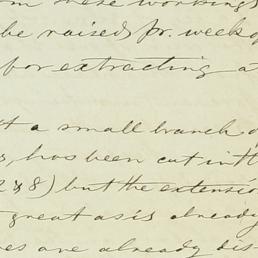 om these workings
be raised pr. week of
for extracting a
t a small branch o
s, has been cut in th
2 & 8) but the extensio
great as is already
es are already dis-